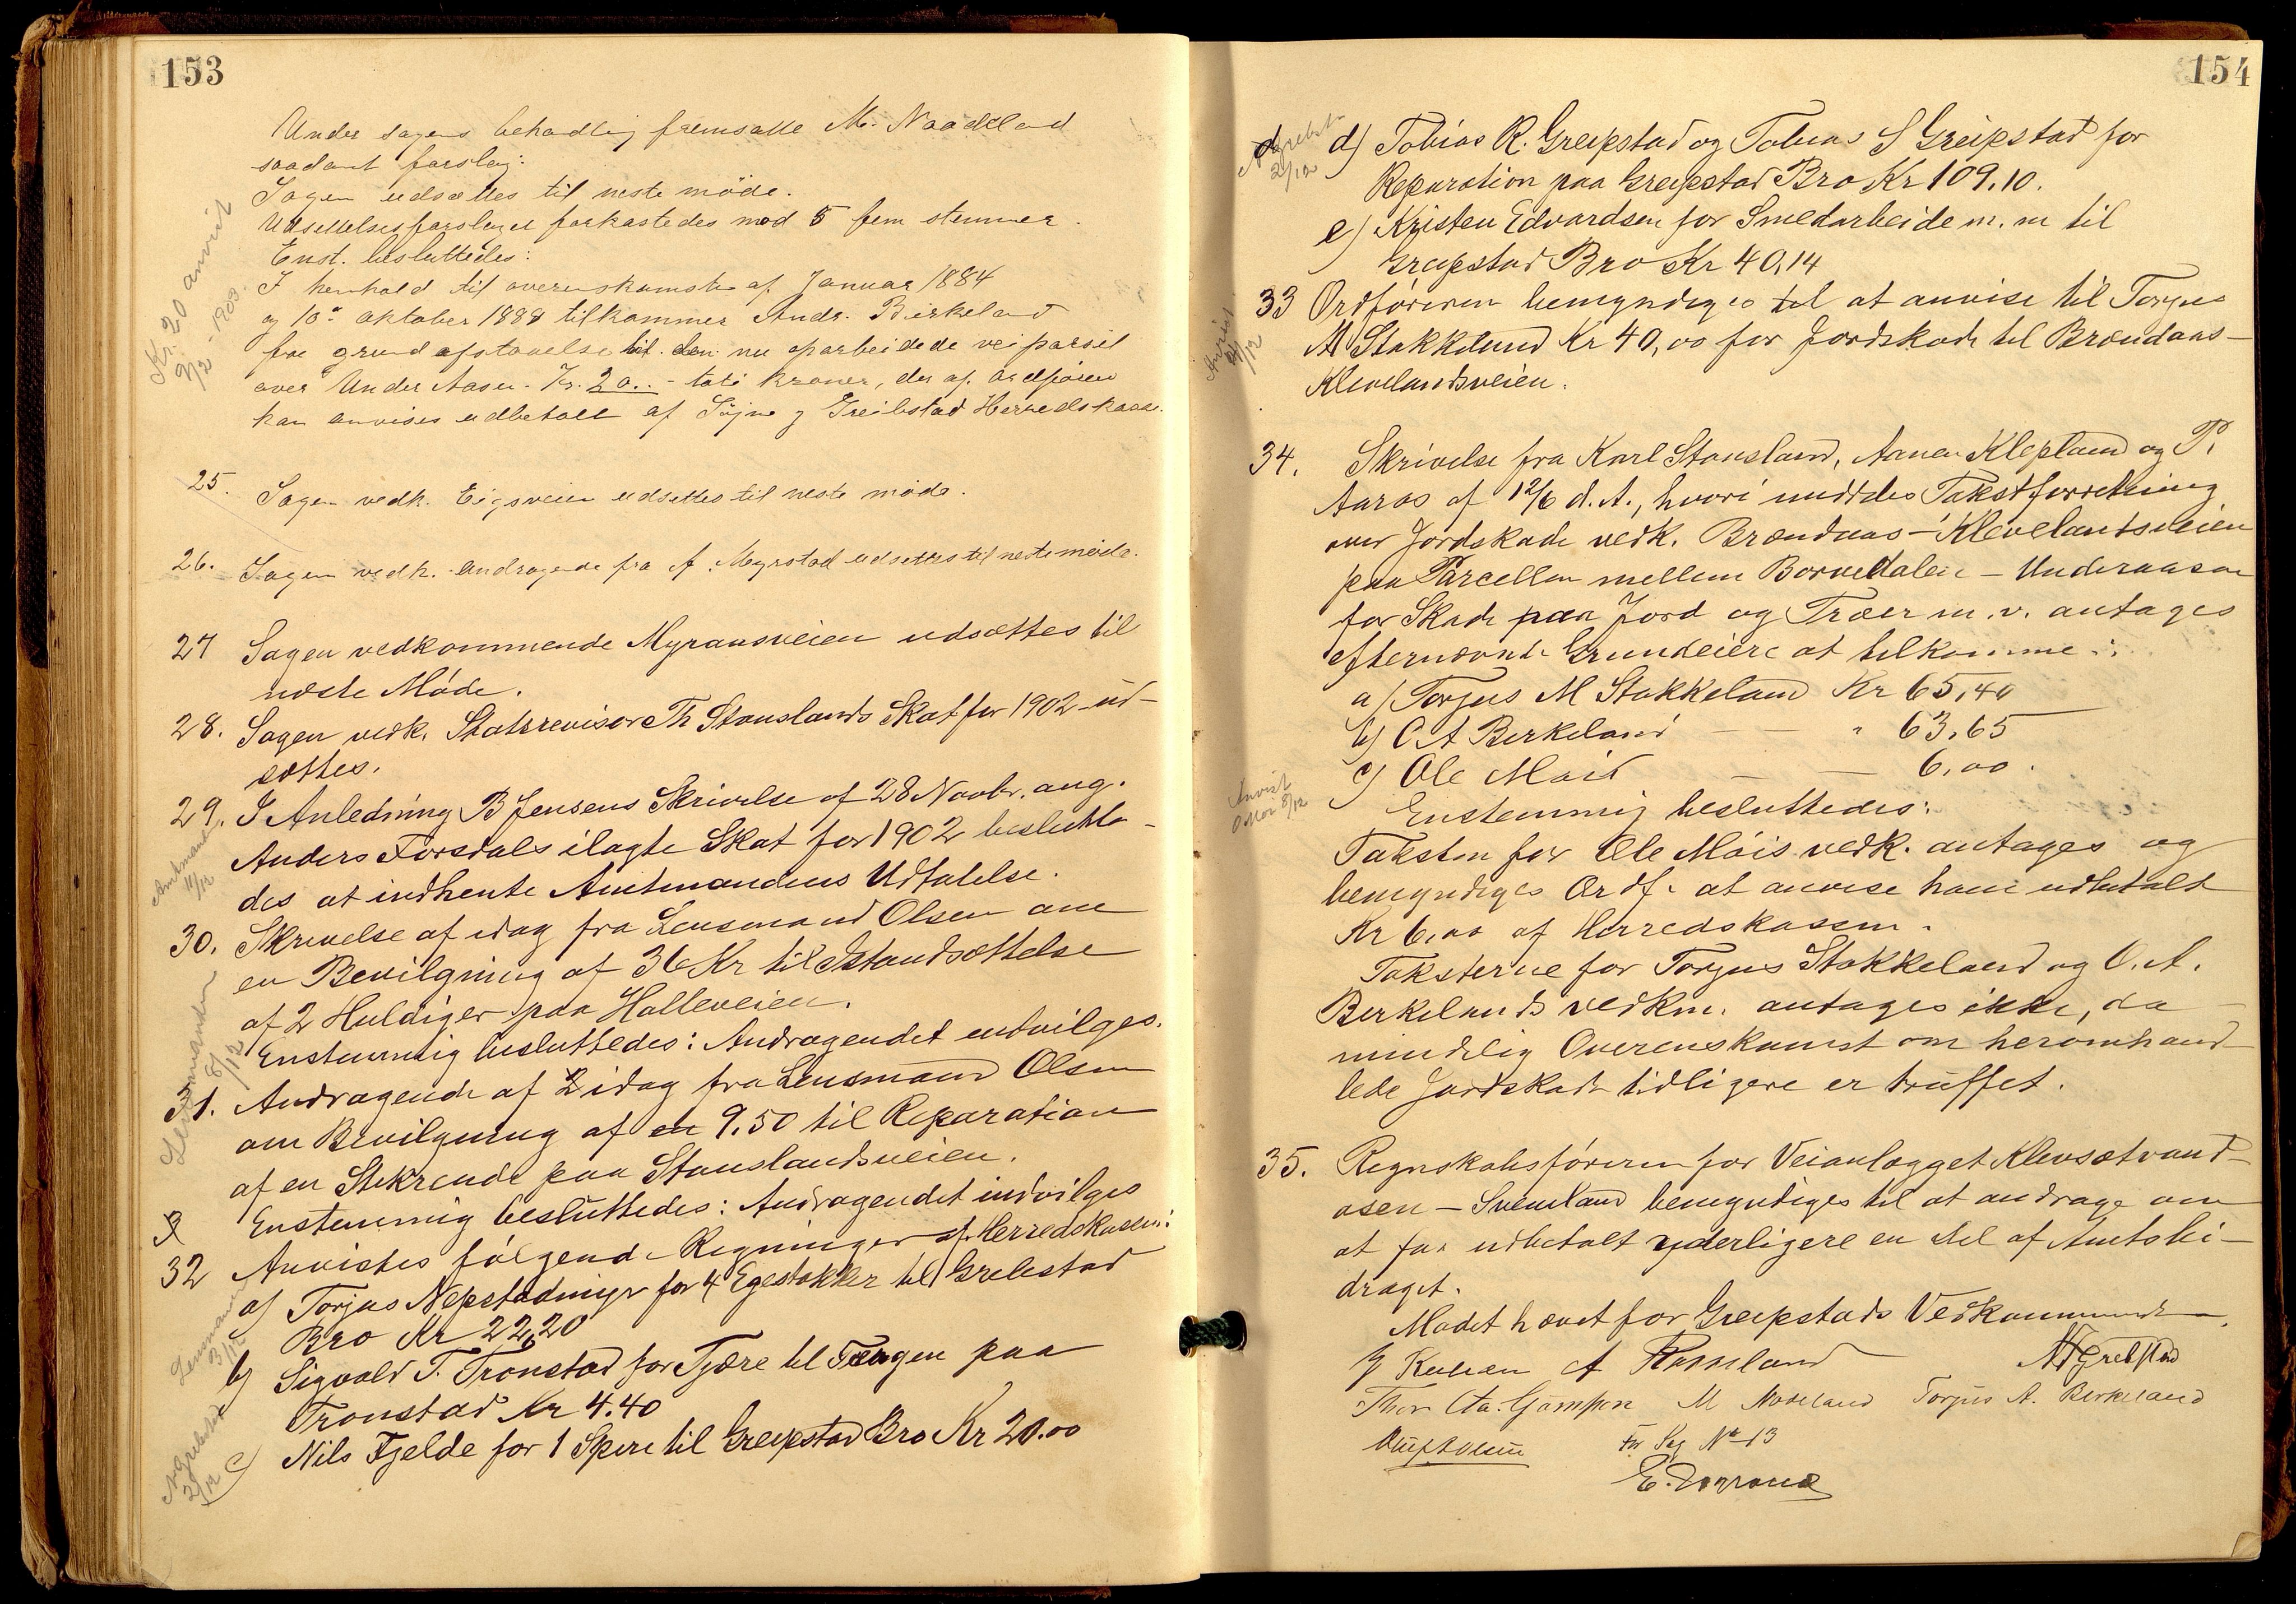 153
Under sagens behandling fremsatte M. Naadeland
saadant forslag:
Sagen udsættes til neste möde.
Udsettelsesforslaget forkastedes mod 5 fem stemmer.
Enst. besluttedes:
I henhold til overenskomster af Januar 1884
og 10de oktober 1888 tilkommer Andr. Birkeland
for grundafstaaelse til den nu oparbeidede veiparsel
over Under Aasen Kr. 20.. - tote kroner, der af ordföreren
kan anvises udbetalt af Söjne og Greibstad Herredskasse.
Kr. 20 anvist
9/12 - 1903.
25. Sagen vedk. Eigsveien udsettes til neste möde.
26. Sagen vedk. andragende fra A. Myrstad udsettes til neste möde.
27 Sagen vedkommende Myransveien udsættes til
næste Möde.
28. Sagen vedk. Statsrevisor Th Stouslands Skat for 1902 ud-
sættes.
29. I Anledning B Jensens Skrivelse af 28 Novbr. ang.
Anders Forsdals ilagte Skat for 1902 beslutte-
des at indhente Amtmandens Udtalelse.
Amtmanden
11/12
30. Skrivelse af idag fra Lensmand Olsen om
en Bevilgning af 36 Kr til Istandsættelse
af 2 Huldiger paa Holleveien.
Enstemmig besluttedes: Andragendet indvilges.
Lensmanden
8/12
31. Andragende af idag fra Lensmand Olsen
om Bevilgning af en 9.50 til Reparation
af en Stikrende paa Stouslandsveien.
Enstemmig besluttedes: Andragendet indvilges
32 Anvistes fölgende Regninger af Herredskassen:
a) Torjus Nepstadmyr for 4 Egestokker til Grebstad
Bro Kr 22,20
Lensmanden
3/12
b) Sigvald T. Tronstad for Tjære til Færgen paa
Tronstad Kr 4.40
c) Nils Fjelde for 1 Spire til Greipstad Bro Kr 20.00
N Grebstad
2/12
154
N Grebstad
2/12
d) Tobias R. Greipstad og Tobias S Greipstad for
Reparation paa Greipstad Bro Kr 109.10.
e) Kristen Edvardsen for Smedarbeide m. m til
Greipstad Bro Kr 40,14
33 Ordföreren bemyndiges til at anvise til Torjus
M Stokkeland Kr 40,00 for Jordskade til Brændaas-
Klevelandsveien.
Anvist
8/12
34. Skrivelse fra Karl Stousland, Aanen Klepland og P.
Aaros af 12/6 d. A., hvori meddeles Takstforretning
over Jordskade vedk. Brændaas-Klevelandsveien
paa Parcellen mellem Borvedalen - Underaasen
for Skade paa Jord og Træer m. v. antages
efternævnte Grundeiere at tilkomme:
a) Torjus M Stokkeland Kr 65,40
b) O A Berkeland - - " 63,65
c) Ole Mois - - 6,00.
Enstemmig besluttedes:
Anvist
O Moi 8/12
Taksten for Ole Mois vedk. antages og
bemyndiges Ordf. at anvise ham udbetalt
Kr 6,00 af Herredskassen.
Taksterne for Torjus Stokkeland og O. A.
Berkelands vedkm. antages ikke, da
mindelig Overenskomst om heromhand
lede Jordskade tidligere er truffet.
35. Regnskabsföreren for Veianlægget Klevsætvand-
osen - Sveneland bemyndiges til at andrage om
at faa udbetalt yderligere en del af Amtsbi-
draget.
Mödet hævet for Greipstads Vedkommende.
A Rosseland N Grebstad
Thor Aa. Gumpen M Nodeland Torjus A. Berkeland
For Sag No 13